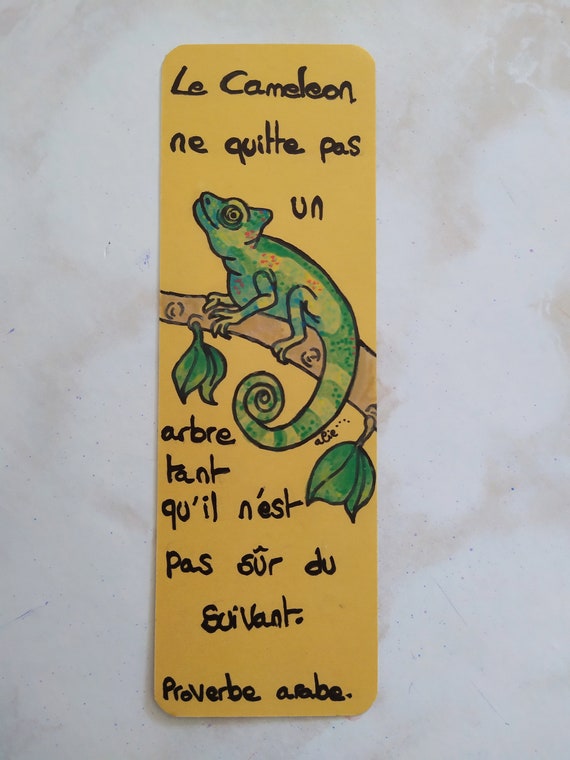 Le Cameleon
ne quitte pas
un
arbre
tant
qu'il n'est
pas sûr du
suivant.
Proverbe arabe.